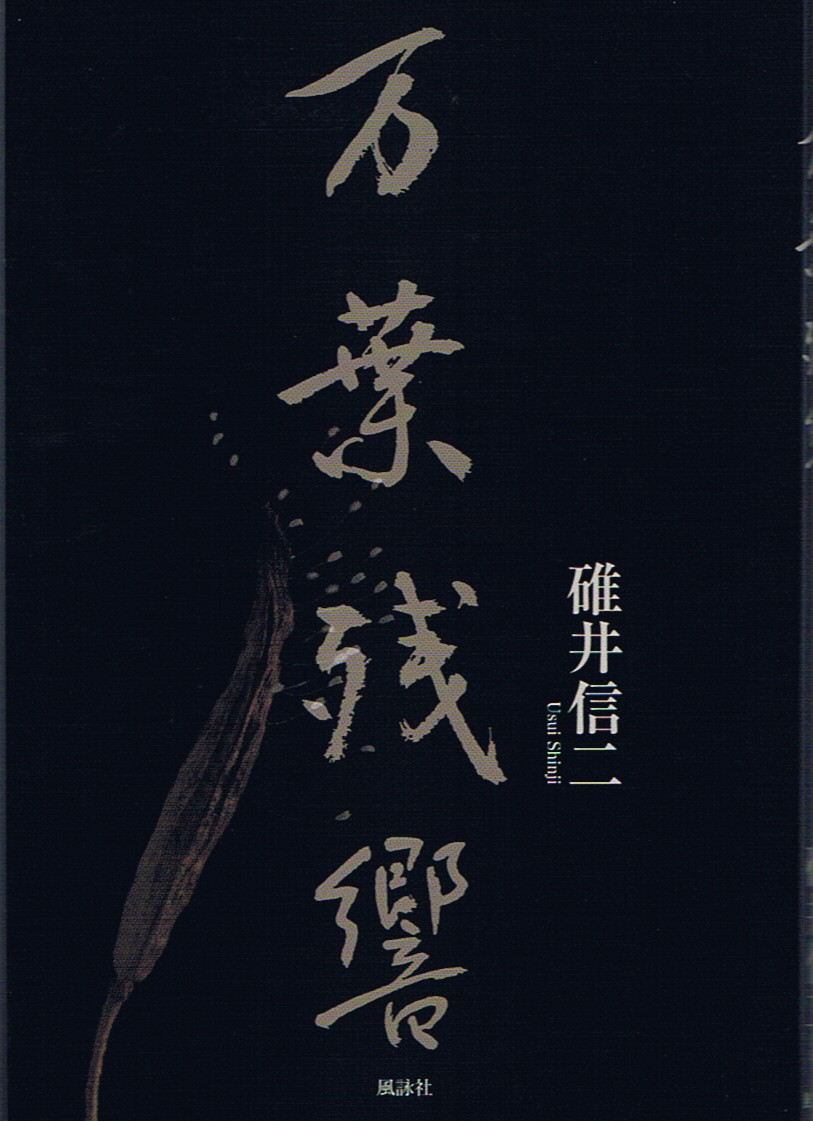 万葉残響
碓井信二
Usui Shinji
風詠社